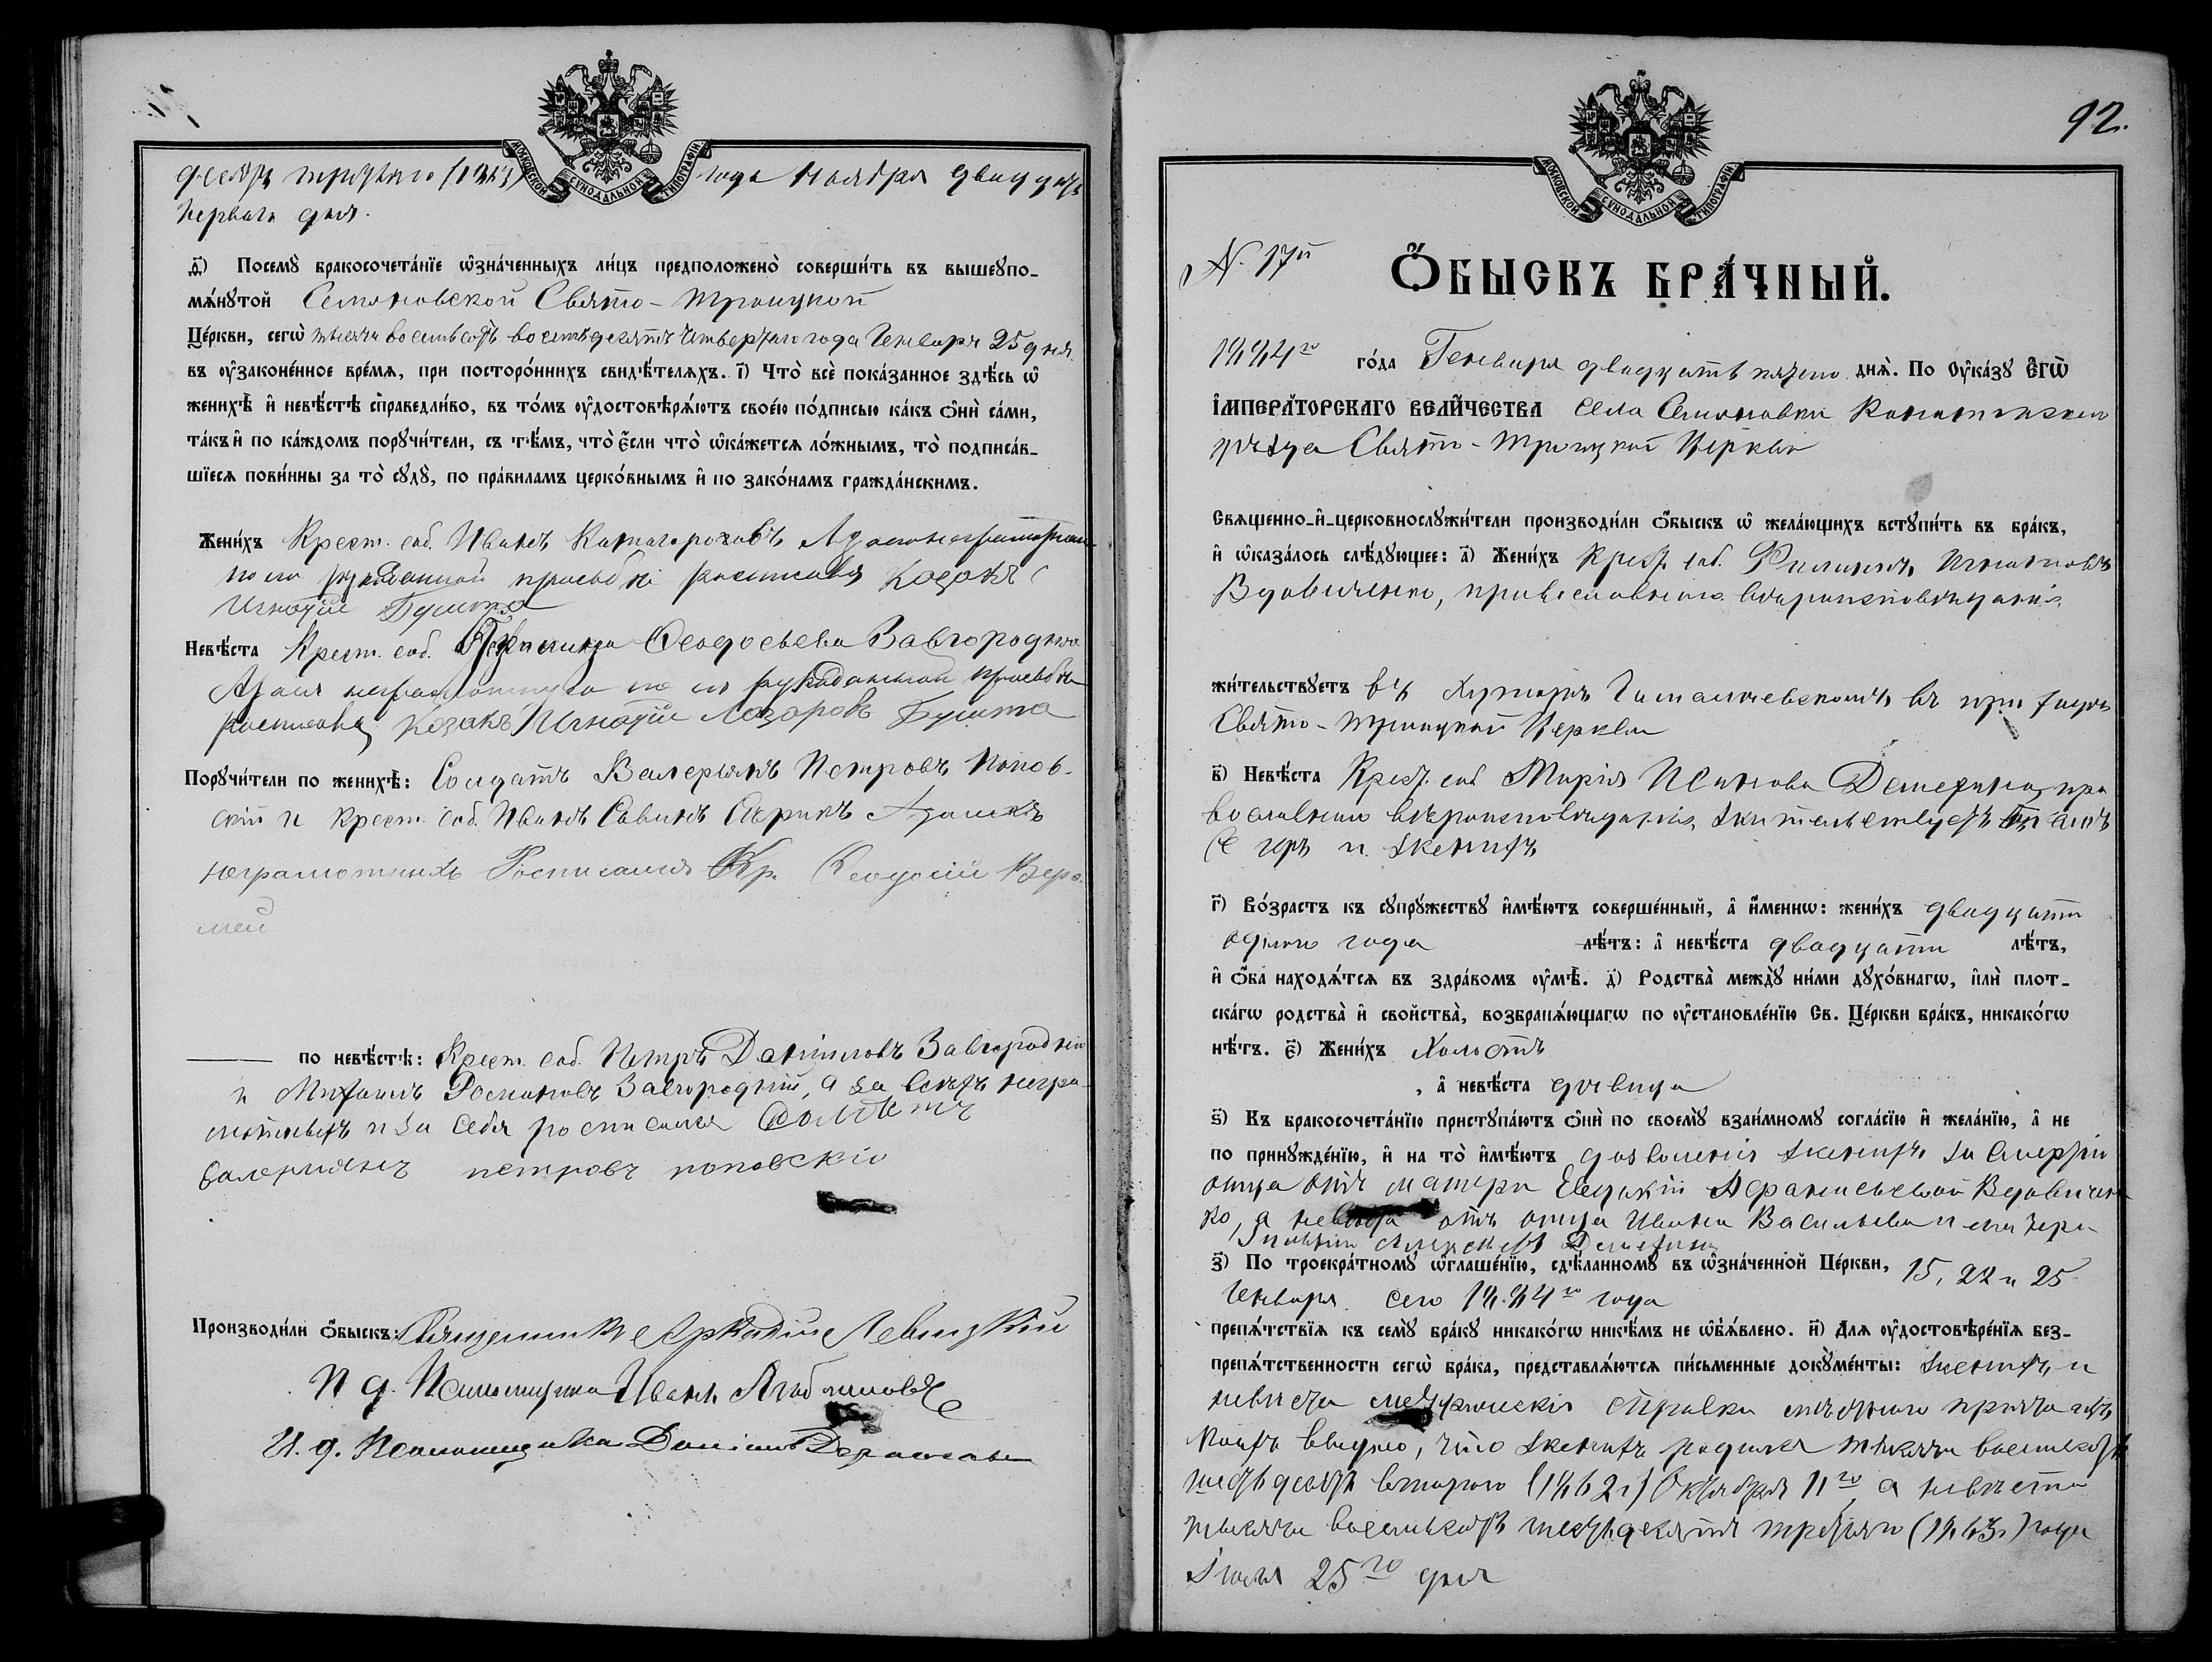 десять третьяго (1863) года Ноября двадцать
перваго дня.
МОСКОВСКОЙ СУНОДАЛЬНОЙ ТИПОГРАФІИ
д҃і) Посемꙋ̀ бракосочета́нїе ѡ҆зна́ченныхъ ли́цъ предположено̀ соверши́ть въ вышеꙋпо-
мѧ́нꙋтой Семеновской Свято-Троицкой
Це́ркви, сегѡ̀ тысяча восемьсотъ восемьдесятъ четвертаго года Генваря 25 дня.
въ ᲂу҆законе́нное вре́мѧ, при посторо́ннихъ свидѣ́телѧхъ. і҃) Что̀ всѐ пока́занное здѣ́сь ѡ҆
женихѣ̀ и҆ невѣ́стѣ справедли́во, въ то́мъ ᲂу҆достовѣрѧ́ютъ свое́ю по́дписью ка́къ ѻ҆нѝ са́ми,
та́къ и҆ по ка́ждомъ порꙋчи́тели, съ тѣ́мъ, что̀ є҆́сли что̀ ѡ҆ка́жетсѧ ло́жнымъ, то̀ подписа́в-
шїесѧ пови́нны за то̀ сꙋдꙋ̀, по пра́виламъ церко́внымъ и҆ по зако́намъ гражда́нскимъ.
Жени́хъ Крест. соб. Иванъ
по его рукоданной просьбѣ росписался козакъ
Игнатій Бушта
Невѣ́ста Крест. соб. Феодосьева Завгородняя
А за ея неграмотную по ея рукоданной просьбѣ
росписался козакъ Игнатій Лазаровъ Бушта
Порꙋчи́тели по женихѣ̀: Солдатъ Валерьянъ Петровъ Попов-
скій и крест. соб. Иванъ Савинъ а за нихъ
неграмотныхъ Росписался Кр. Феодосій Вере-
мей
по невѣ́стѣ: Крест. соб. Петръ Даниловъ Завгородній
и Михаилъ Романовъ Завгородній, а за всѣхъ негра-
мотныхъ и за себя росписался Солдатъ
валериянъ петровъ поповскіи
Производи́ли ѻ҆́быскъ: Священникъ Аркадій Левицкій
И д. Псаломщика Иванъ
И. д. Псаломщика
92.
МОСКОВСКОЙ СУНОДАЛЬНОЙ ТИПОГРАФІИ
№ 17й
Ѻ҆́БЫСКЪ БРА́ЧНЫЙ.
1884го го́да Генваря двадцать пятаго днѧ̀. По ᲂу҆ка́зꙋ Є҆гѡ̀
І҆мпера́торскагѡ вели́чества села Семеновки Константиноградскаго
уѣзда Свято-Троицкой Церкви
Свѧщенно-и҆-церковнослꙋжи́тели производи́ли ѻ҆́быскъ ѡ҆ жела́ющихъ встꙋпи́ть въ бра́къ,
и҆ ѡ҆каза́лось слѣ́дꙋющее: а҃) Жени́хъ Крест. соб. Филиппъ Игнатовъ
Вдовиченко, православнаго вѣроисповѣданія,
жи́тельствꙋетъ въ хуторѣ въ приходѣ
Свято-Троицкой Церкви
в҃) Невѣ́ста Крест. соб. Марія Иванова пра-
вославнаго вѣроисповѣданія, жительствуетъ тамъ
же гдѣ и женихъ
г҃) Во́зрастъ къ сꙋпрꙋ́жествꙋ и҆мѣ́ютъ соверше́нный, а҆ и҆́меннѡ: жени́хъ двадцати
одного года лѣ́тъ: а҆ невѣ́ста двадцати лѣ́тъ,
и҆ ѻ҆́ба нахо́дѧтсѧ въ здра́вомъ ᲂу҆мѣ̀. д҃) Родства̀ междꙋ̀ ни́ми дꙋхо́внагѡ, и҆лѝ плот-
ска́гѡ родства̀ и҆ свойства̀, возбранѧ́ющагѡ по ᲂу҆становле́нїю Св. Це́ркви бра́къ, никако́гѡ
нѣ́тъ. є҃) Жени́хъ Холостъ
, а҆ невѣ́ста дѣвица
ѕ҃) Къ бракосочета́нїю пристꙋпа́ютъ ѻ҆нѝ по своемꙋ̀ взаи́мномꙋ согла́сїю и҆ жела́нїю, а҆ не
по принꙋжде́нїю, и҆ на то̀ и҆мѣ́ютъ дозволенія женихъ за смертію
отца отъ матери Евдокіи Афанасьевой Вдовичен-
ко, а невѣста отъ отца Ивана Васильева и матери
з҃) По троекра́тномꙋ ѡ҆глаше́нїю, сдѣ́ланномꙋ въ ѡ҆зна́ченной Це́ркви, 15, 22 и 25
Генваря сего 1884го года
препѧ́тствїѧ къ семꙋ̀ бра́кꙋ никако́гѡ никѣ́мъ не ѡ҆б̾ѧ́влено. и҃) Длѧ ᲂу҆достовѣре́нїѧ без-
препѧ́тственности сегѡ̀ бра́ка, представлѧ́ютсѧ пи́сьменные докꙋме́нты: женихъ и
невѣста метрическія справки мѣстнаго причта изъ
коихъ видно, что женихъ родился тысяча восемьсотъ
шестьдесятъ втораго (1862г.) Октября 11го а невѣста
тысяча восемьсотъ шестьдесятъ третьяго (1863г.) года
Іюля 25го дня